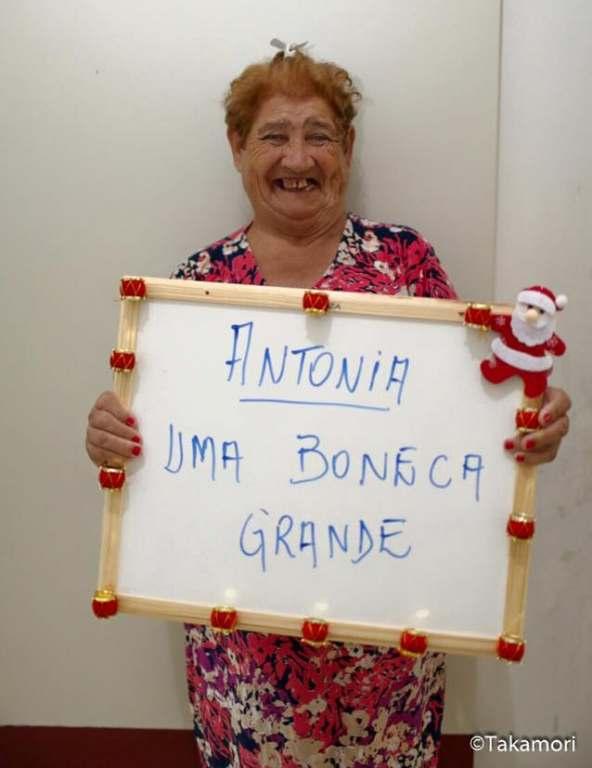 ANTONIA
UMA BONECA
GRANDE
©Takamori